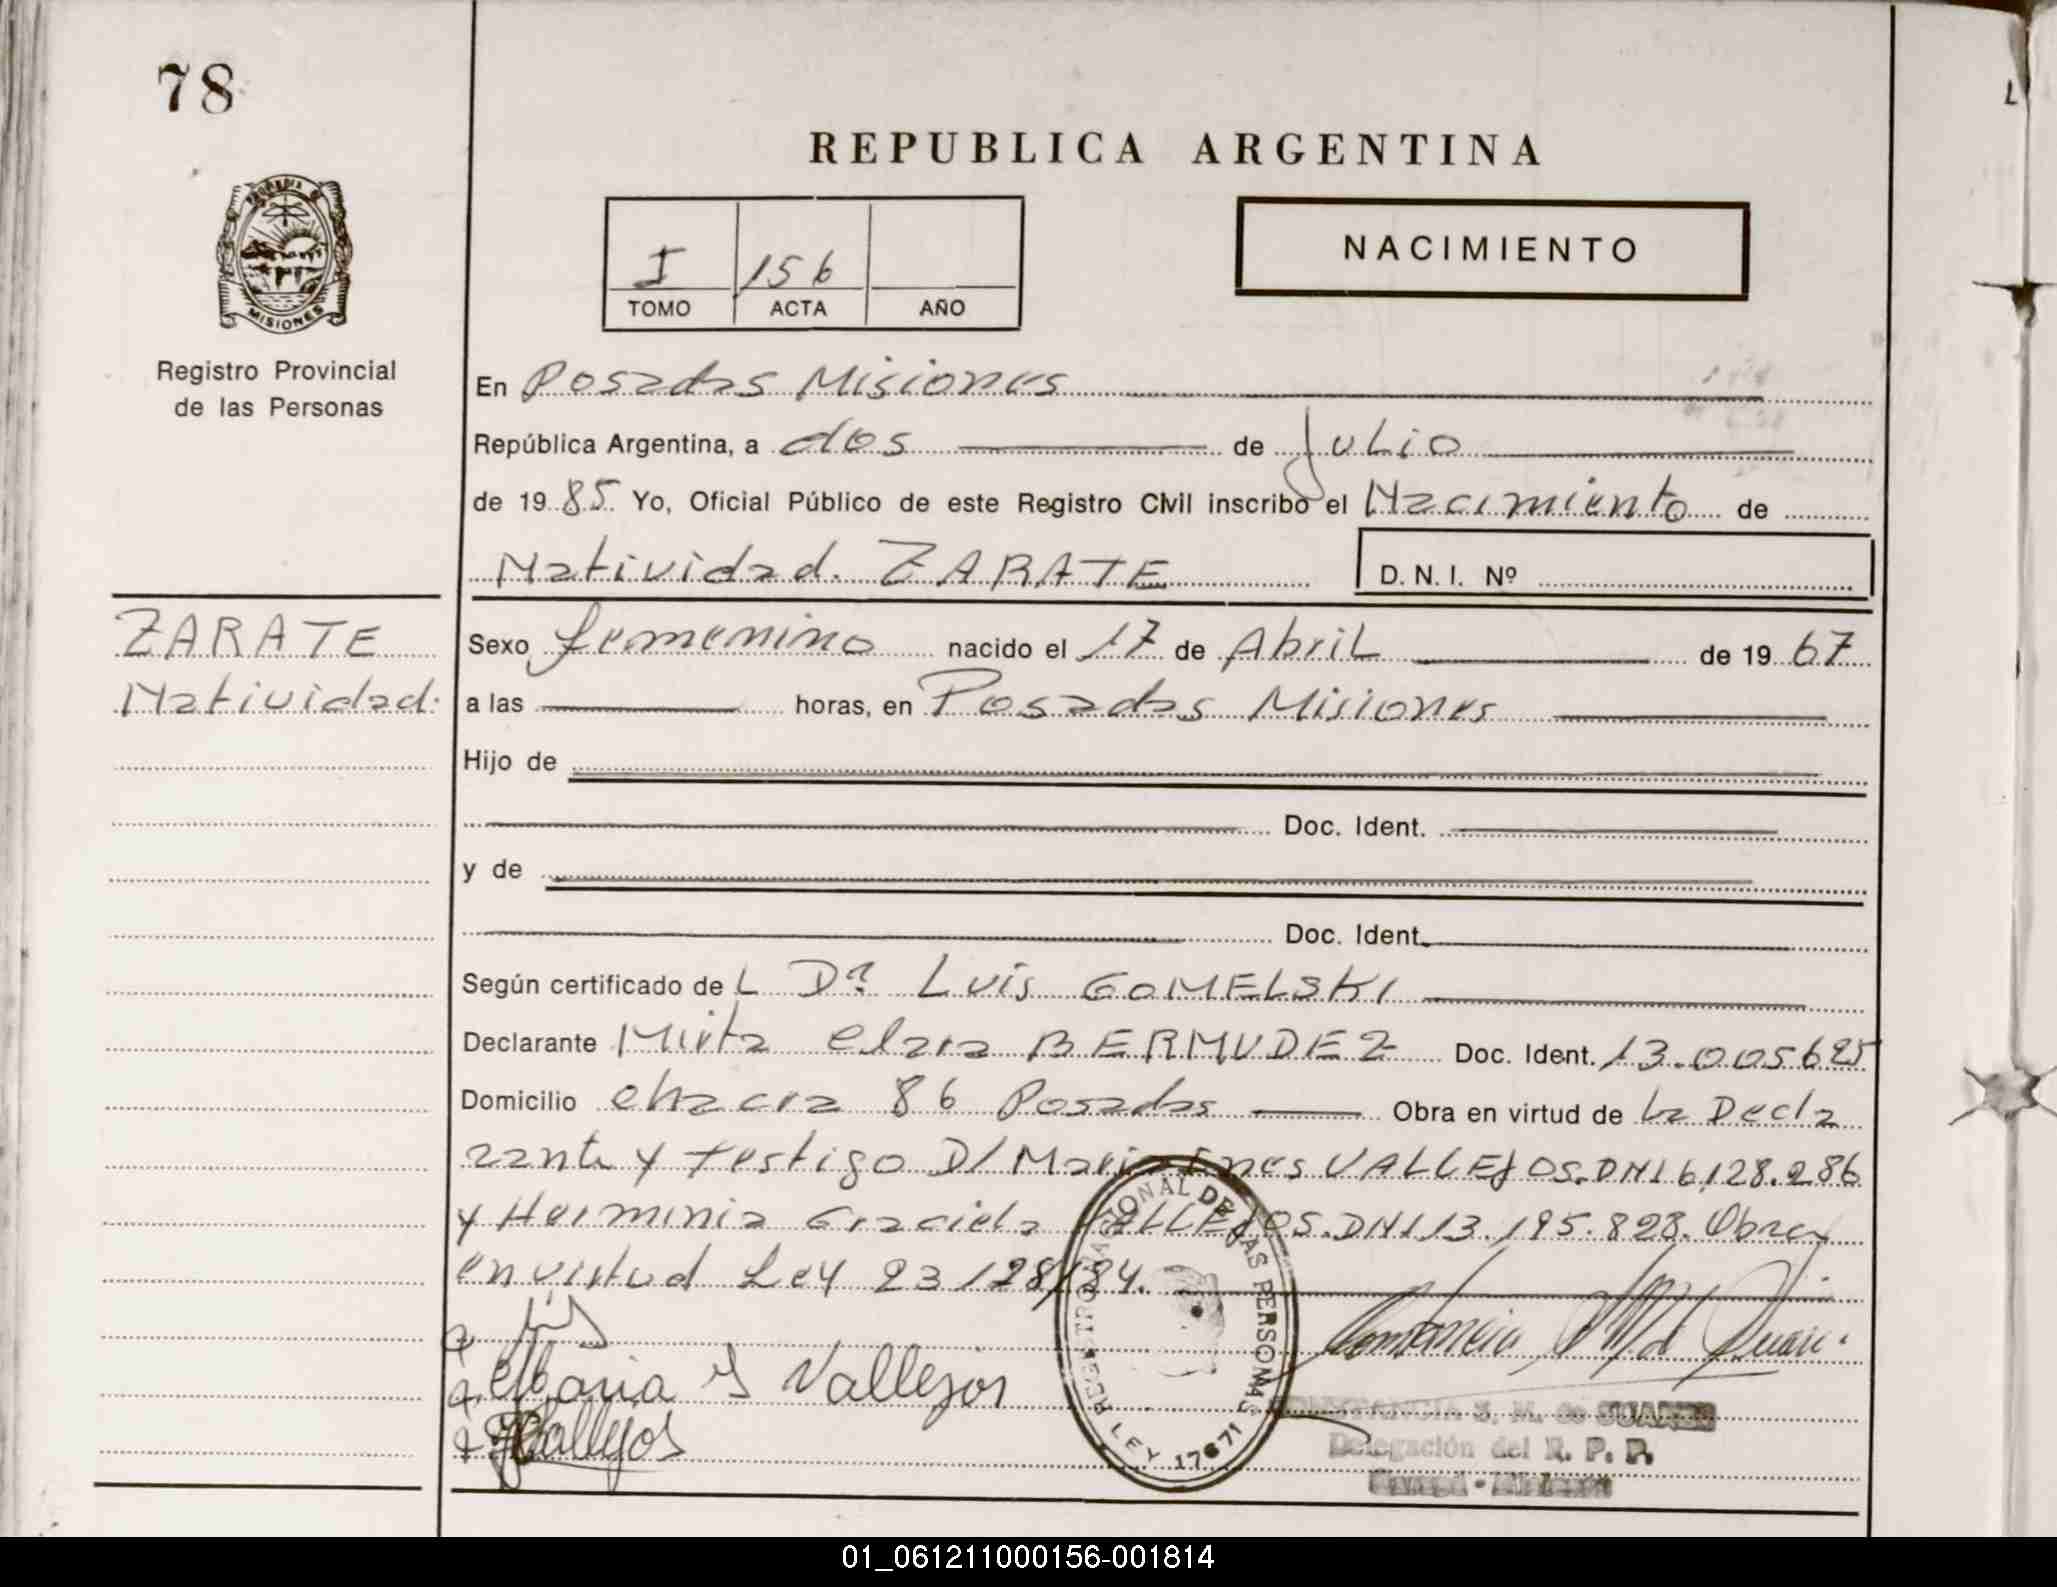 78
REPUBLICA ARGENTINA
PROVINCIA DE
MISIONES
Registro Provincial
de las Personas
I 156
TOMO ACTA AÑO
NACIMIENTO
En Posadas Misiones
República Argentina, a dos de Julio
de 19 85 Yo, Oficial Público de este Registro Civil inscribo el Nacimiento de
Natividad ZARATE D.N.I. Nº
ZARATE
Natividad
Sexo femenino nacido el 17 de Abril de 19 67
a las horas, en Posadas Misiones
Hijo de
Doc. Ident.
y de
Doc. Ident.
Según certificado de L Dr Luis GOMELSKI
Declarante Mirta Clara BERMUDEZ Doc. Ident. 13.005625
Domicilio Chacra 86 Posadas Obra en virtud de La Decla
rante y testigo D/ Maria Ines VALLEJOS.DNI 6.128.286
y Herminia Graciela VALLEJOS.DNI 13.195.828. Obra
en virtud Ley 23128/84.
Maria I Vallejos
HVallejos
REGISTRO NACIONAL DE LAS PERSONAS
LEY 17671
CONSTANCIA S. M. de SUAREZ
Delegación del R. P. P.
Misiones
01_061211000156-001814